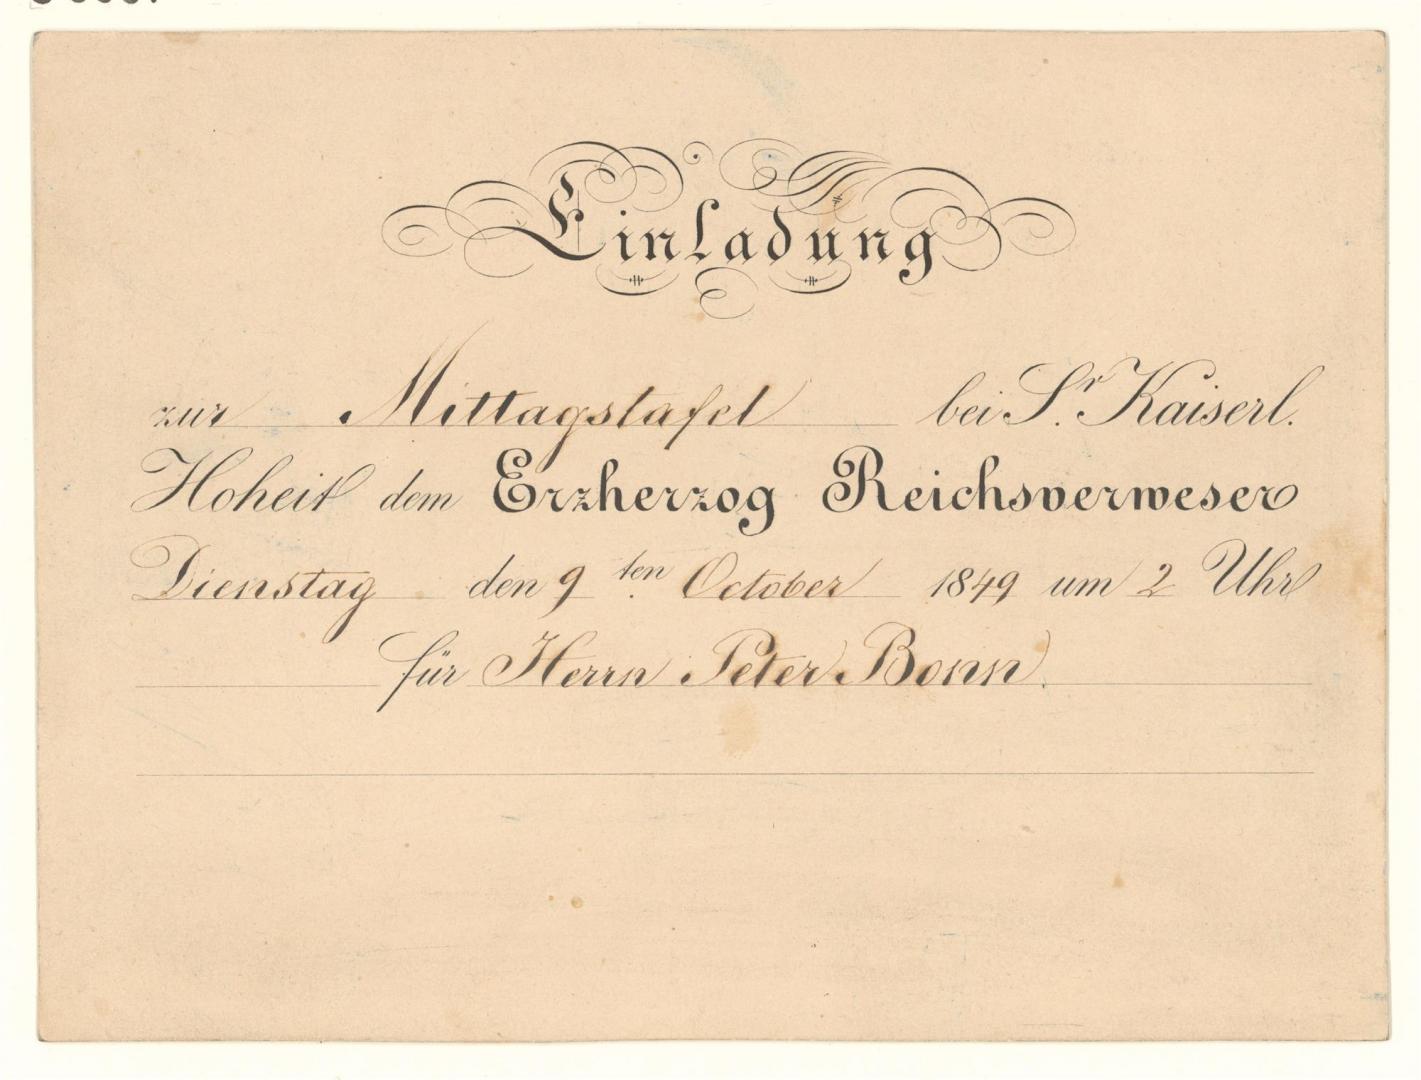 Einladung
zur Mittagstafel bei Sr. Kaiserl.
Hoheit dem Erzherzog Reichsverweser
Dienstag den 9ten October 1849 um 2 Uhr
für Herrn Peter Bonn.